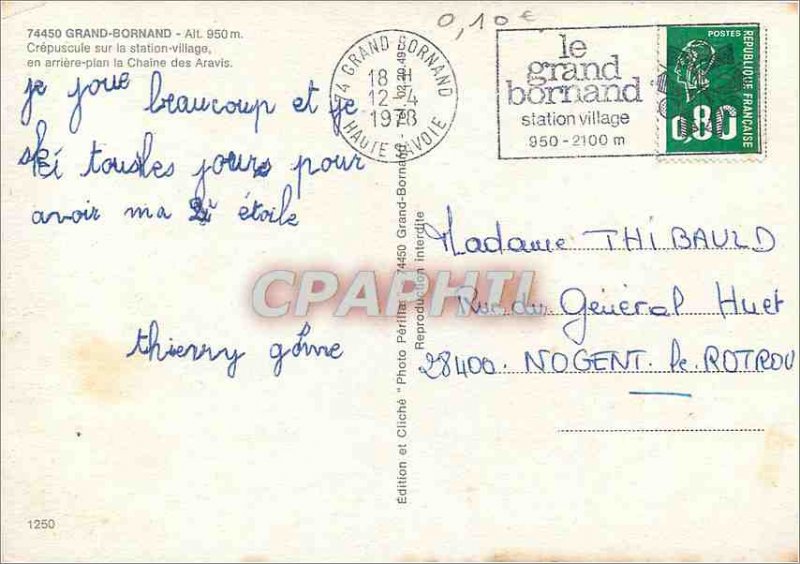 0,10 €
74450 GRAND-BORNAND - Alt. 950 m.
Crépuscule sur la station-village,
en arrière-plan la Chaine des Aravis.
je joue beaucoup et je
ski tous les jours pour
avoir ma étoile
thierry
1250
74 GRAND BORNAND
18 H
12 - 4
1978
HAUTE SAVOIE
le
grand
bornand
station village
950 - 2100 m
POSTES
RÉPUBLIQUE FRANÇAISE
0,80
Édition et Cliché "Photo Périlla" 74450 Grand-Bornand -
Reproduction interdite
Madame THIBAULD
Rue du Général Huet
28400 NOGENT le ROTROU
CPAPHIL